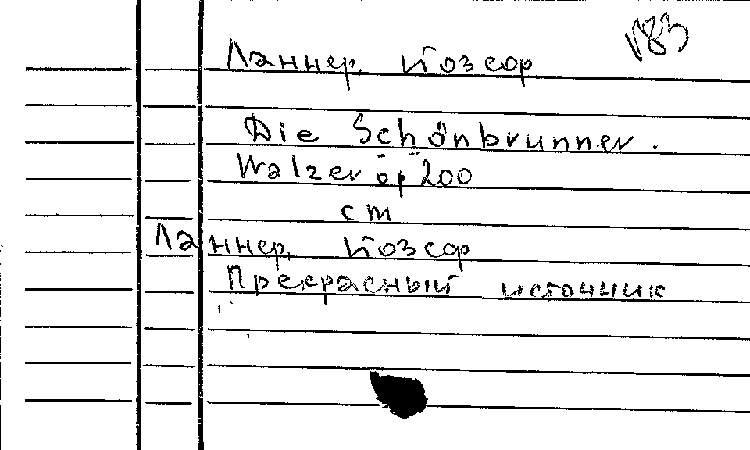 Ланнер, Йозеф
Die Schönbrunner.
Walzer op 200
см
Ланнер, Йозеф
Прекрасный источник